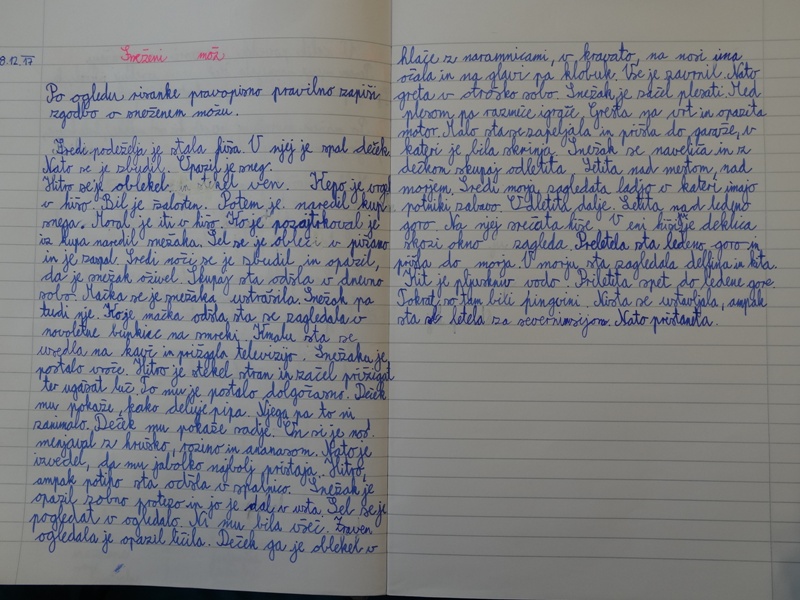 8.12.17
Sneženi mož
Po ogledu risanke pravopisno pravilno zapiši
zgodbo o sneženem možu.
Sredi podeželja je stala hiša. V njej je spal deček.
Nato se je zbudil. Opazil je sneg.
Hitro se je oblekel in stekel ven. Kepo je vrgel
v hišo. Bil je žalosten. Potem je naredil kup
snega. Moral je iti v hišo. Ko je pozajtrkoval je
iz kupa naredil snežaka. Šel se je obleči v pižamo
in je zaspal. Sredi noči se je zbudil in opazil,
da je snežak oživel. Skupaj sta odšla v dnevno
sobo. Mačka se je snežaka ustrašila. Snežak pa
tudi nje. Ko je mačka odšla sta se zagledala v
novoletne bunkice na smreki. Kmalu sta se
usedla na kavč in prižgala televizijo. Snežaku je
postalo vroče. Hitro je stekel stran in začel prižigat
ter ugašat luč. To mu je postalo dolgočasno. Deček
mu pokaže, kako deluje pipa. Njega pa to ni
zanimalo. Deček mu pokaže sadje. On si je nos
menjaval z hruško, rozino in ananasom. Nato je
izvedel, da mu jabolko najbolj pristaja. Hitro,
ampak potiho sta odšla v spalnico. Snežak je
opazil zobno protezo in jo je dal v usta. Šel se je
pogledat v ogledalo. Ni mu bila všeč. Zraven
ogledala je opazil ličila. Deček ga je oblekel v
hlače z naramnicami, v kravato, na nosi ima
očala in na glavi pa klobuk. Vse je zavrnil. Nato
greta v otroško sobo. Snežak je začel plesati. Med
plesom pa razmeče igrače. Gresta na vrt in opazita
motor. Malo sta se zapeljala in prišla do garaže, v
kateri je bila skrinja. Snežak se naveliča in z
dečkom skupaj odletita. Letita nad mestom, nad
morjem. Sredi morja zagledata ladjo v kateri imajo
potniki zabavo. Odletita dalje. Letita nad ledeno
goro. Na njej srečata hiše. V eni hiši je deklica
skozi okno zagleda. Preletela sta ledeno goro in
prišla do morja. V morju sta zagledala delfina in kita.
Kit je pljusknil vodo. Priletita spet do ledene gore.
Tokrat so tam bili pingvini. Nista se ustavljala, ampak
sta letela za severnim sijem. Nato pristaneta.